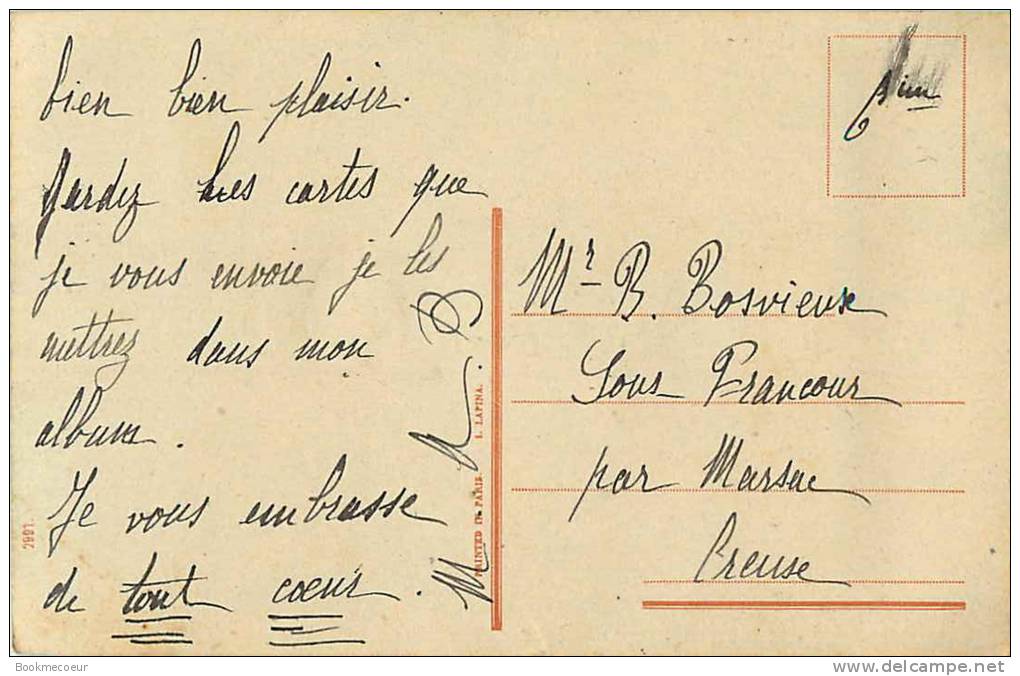 bien bien plaisir.
Gardez les cartes que
je vous envoie je les
mettrez dans mon
album.
Je vous embrasse
de tout coeur.
M. A. B
2991.
PRINTED IN PARIS. I. LAPINA.
Mr B. Bosvieux
Sous Francour
par Marsac
Creuse
Bookmecoeur
www.delcampe.net